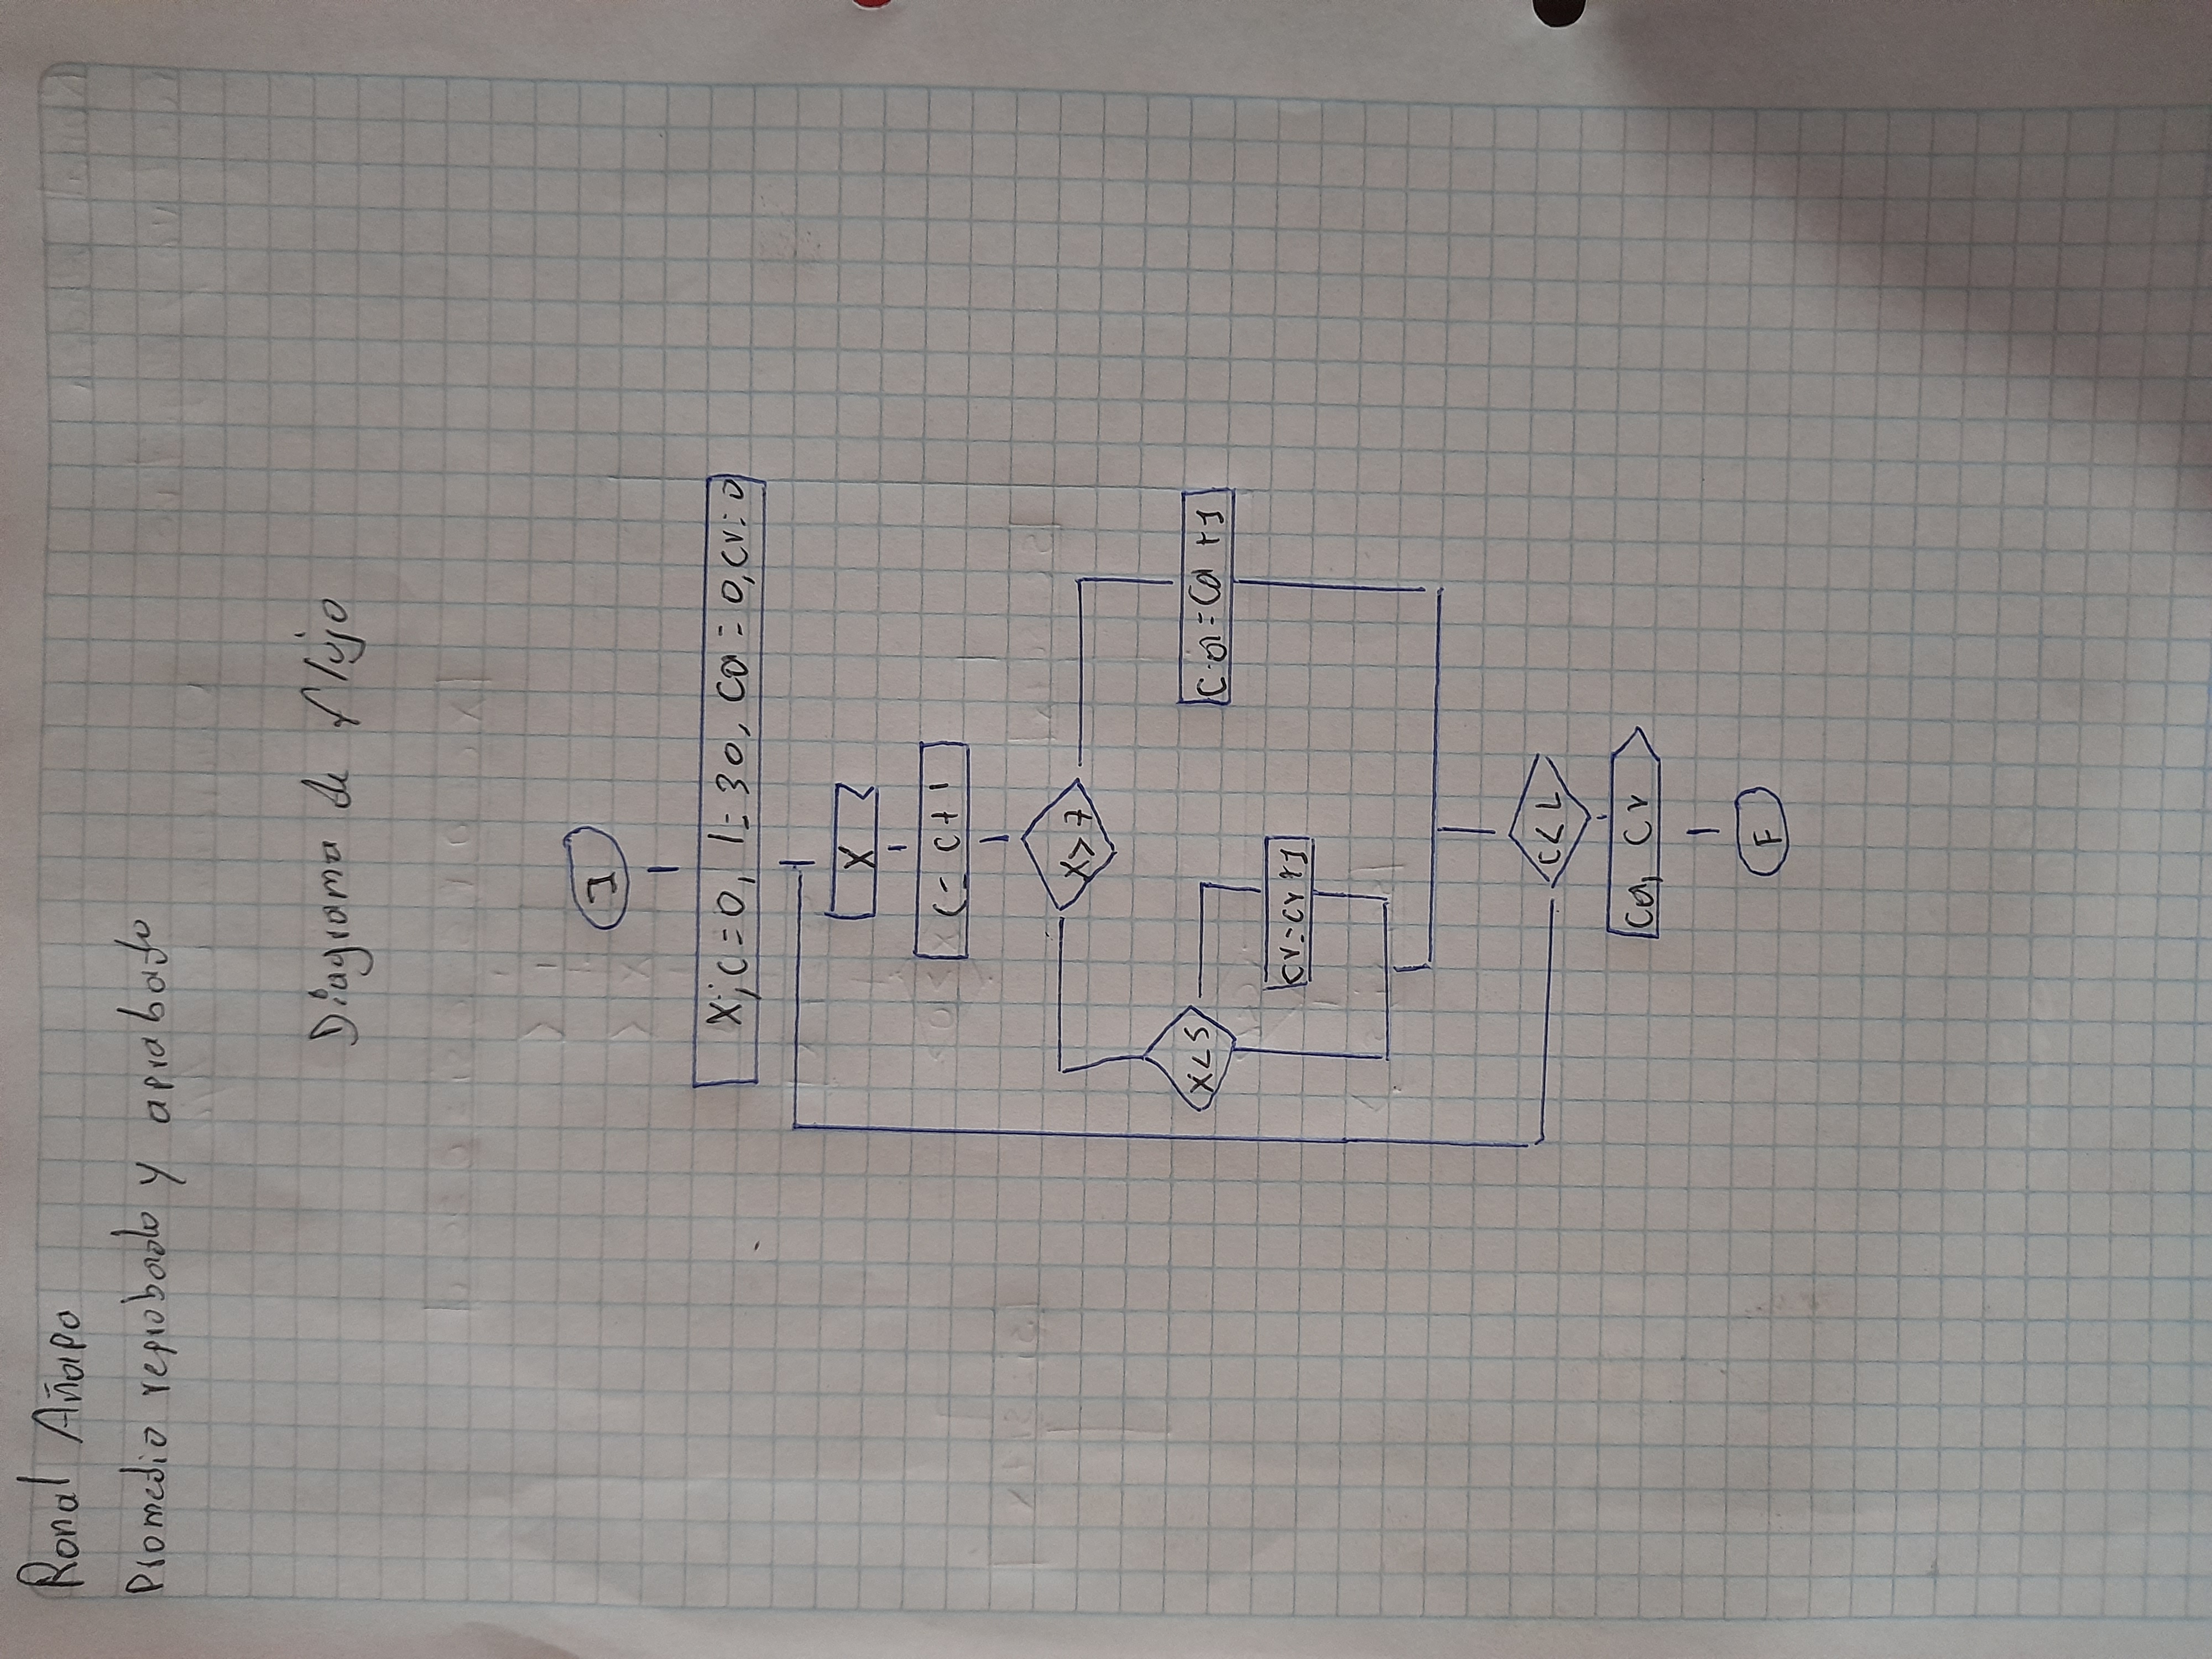 Ronal Añapa
Promedio reprobado y aprobado
Diagrama de flujo
I
X; C=0, l=30, Ca=0, Cr=0
X
C=C+1
X>7
X<5
Ca=Ca+1
Cr=Cr+1
C<L
Ca, Cr
F